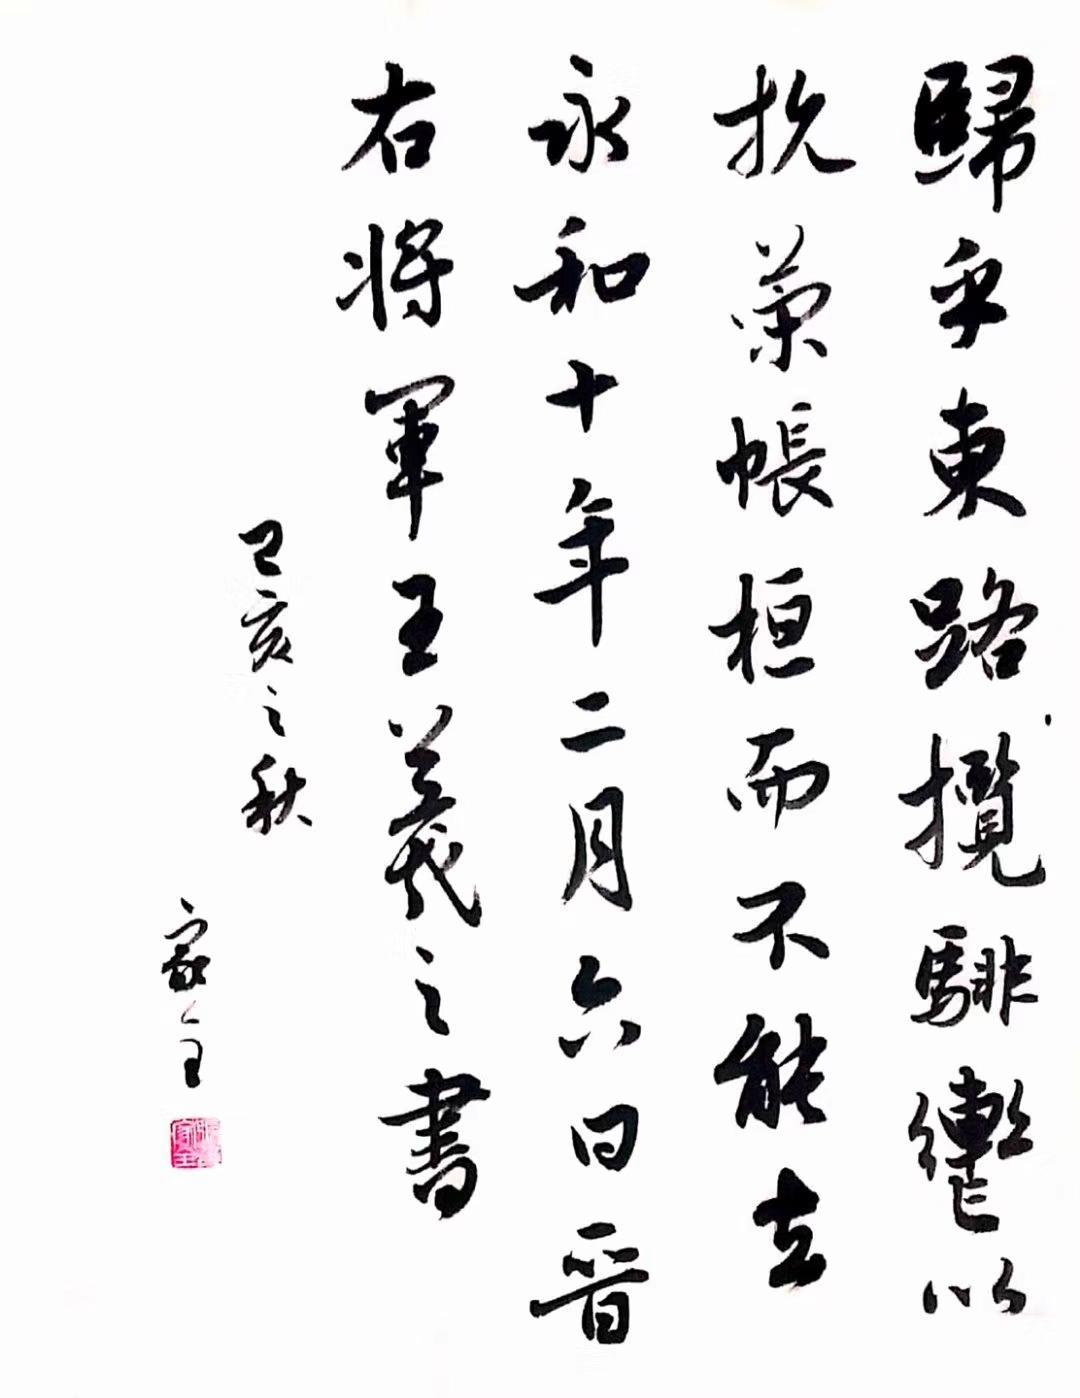 歸乎東路攬騑轡以
抗策帳桓而不能去
永和十年二月六日晉
右将軍王羲之書
己亥之秋
家全